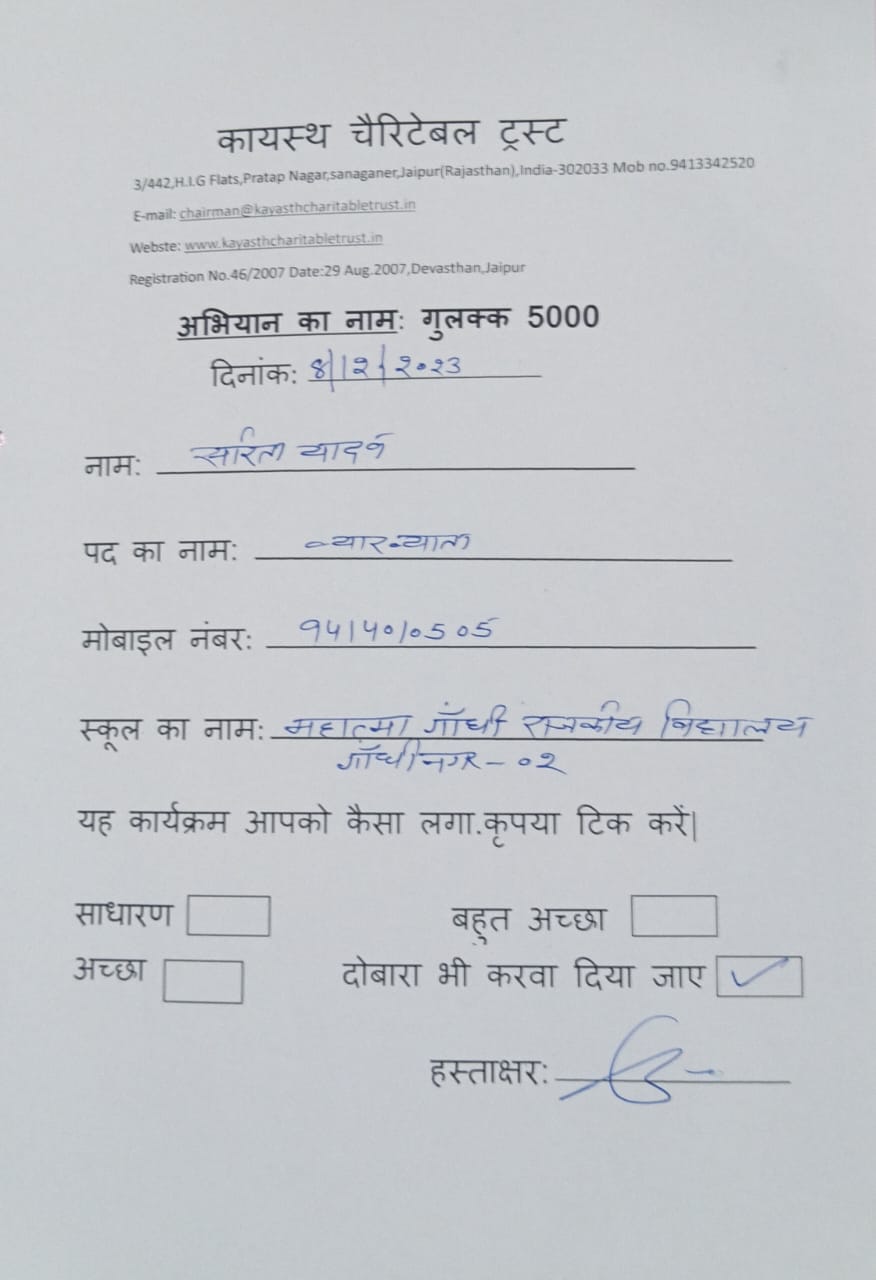 कायस्थ चैरिटेबल ट्रस्ट
3/442,H.I.G Flats,Pratap Nagar,sanaganer,Jaipur(Rajasthan),India-302033 Mob no.9413342520
E-mail: chairman@kayasthcharitabletrust.in
Webste: www.kayasthcharitabletrust.in
Registration No.46/2007 Date:29 Aug.2007,Devasthan,Jaipur
अभियान का नाम: गुलक्क 5000
दिनांक: 8/12/२०२३
नाम: सरिता यादव
पद का नाम: व्याख्याता
मोबाइल नंबर: 9414010505
स्कूल का नाम: महात्मा गाँधी राजकीय विद्यालय
गाँधीनगर - ०२
यह कार्यक्रम आपको कैसा लगा.कृपया टिक करें|
साधारण बहुत अच्छा
अच्छा दोबारा भी करवा दिया जाए ✓
हस्ताक्षर: